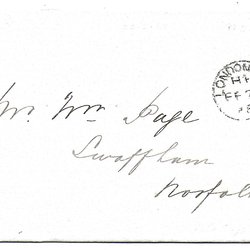 LONDON
H
FE
Mr. Wm. Page
Swaffham
Norfolk